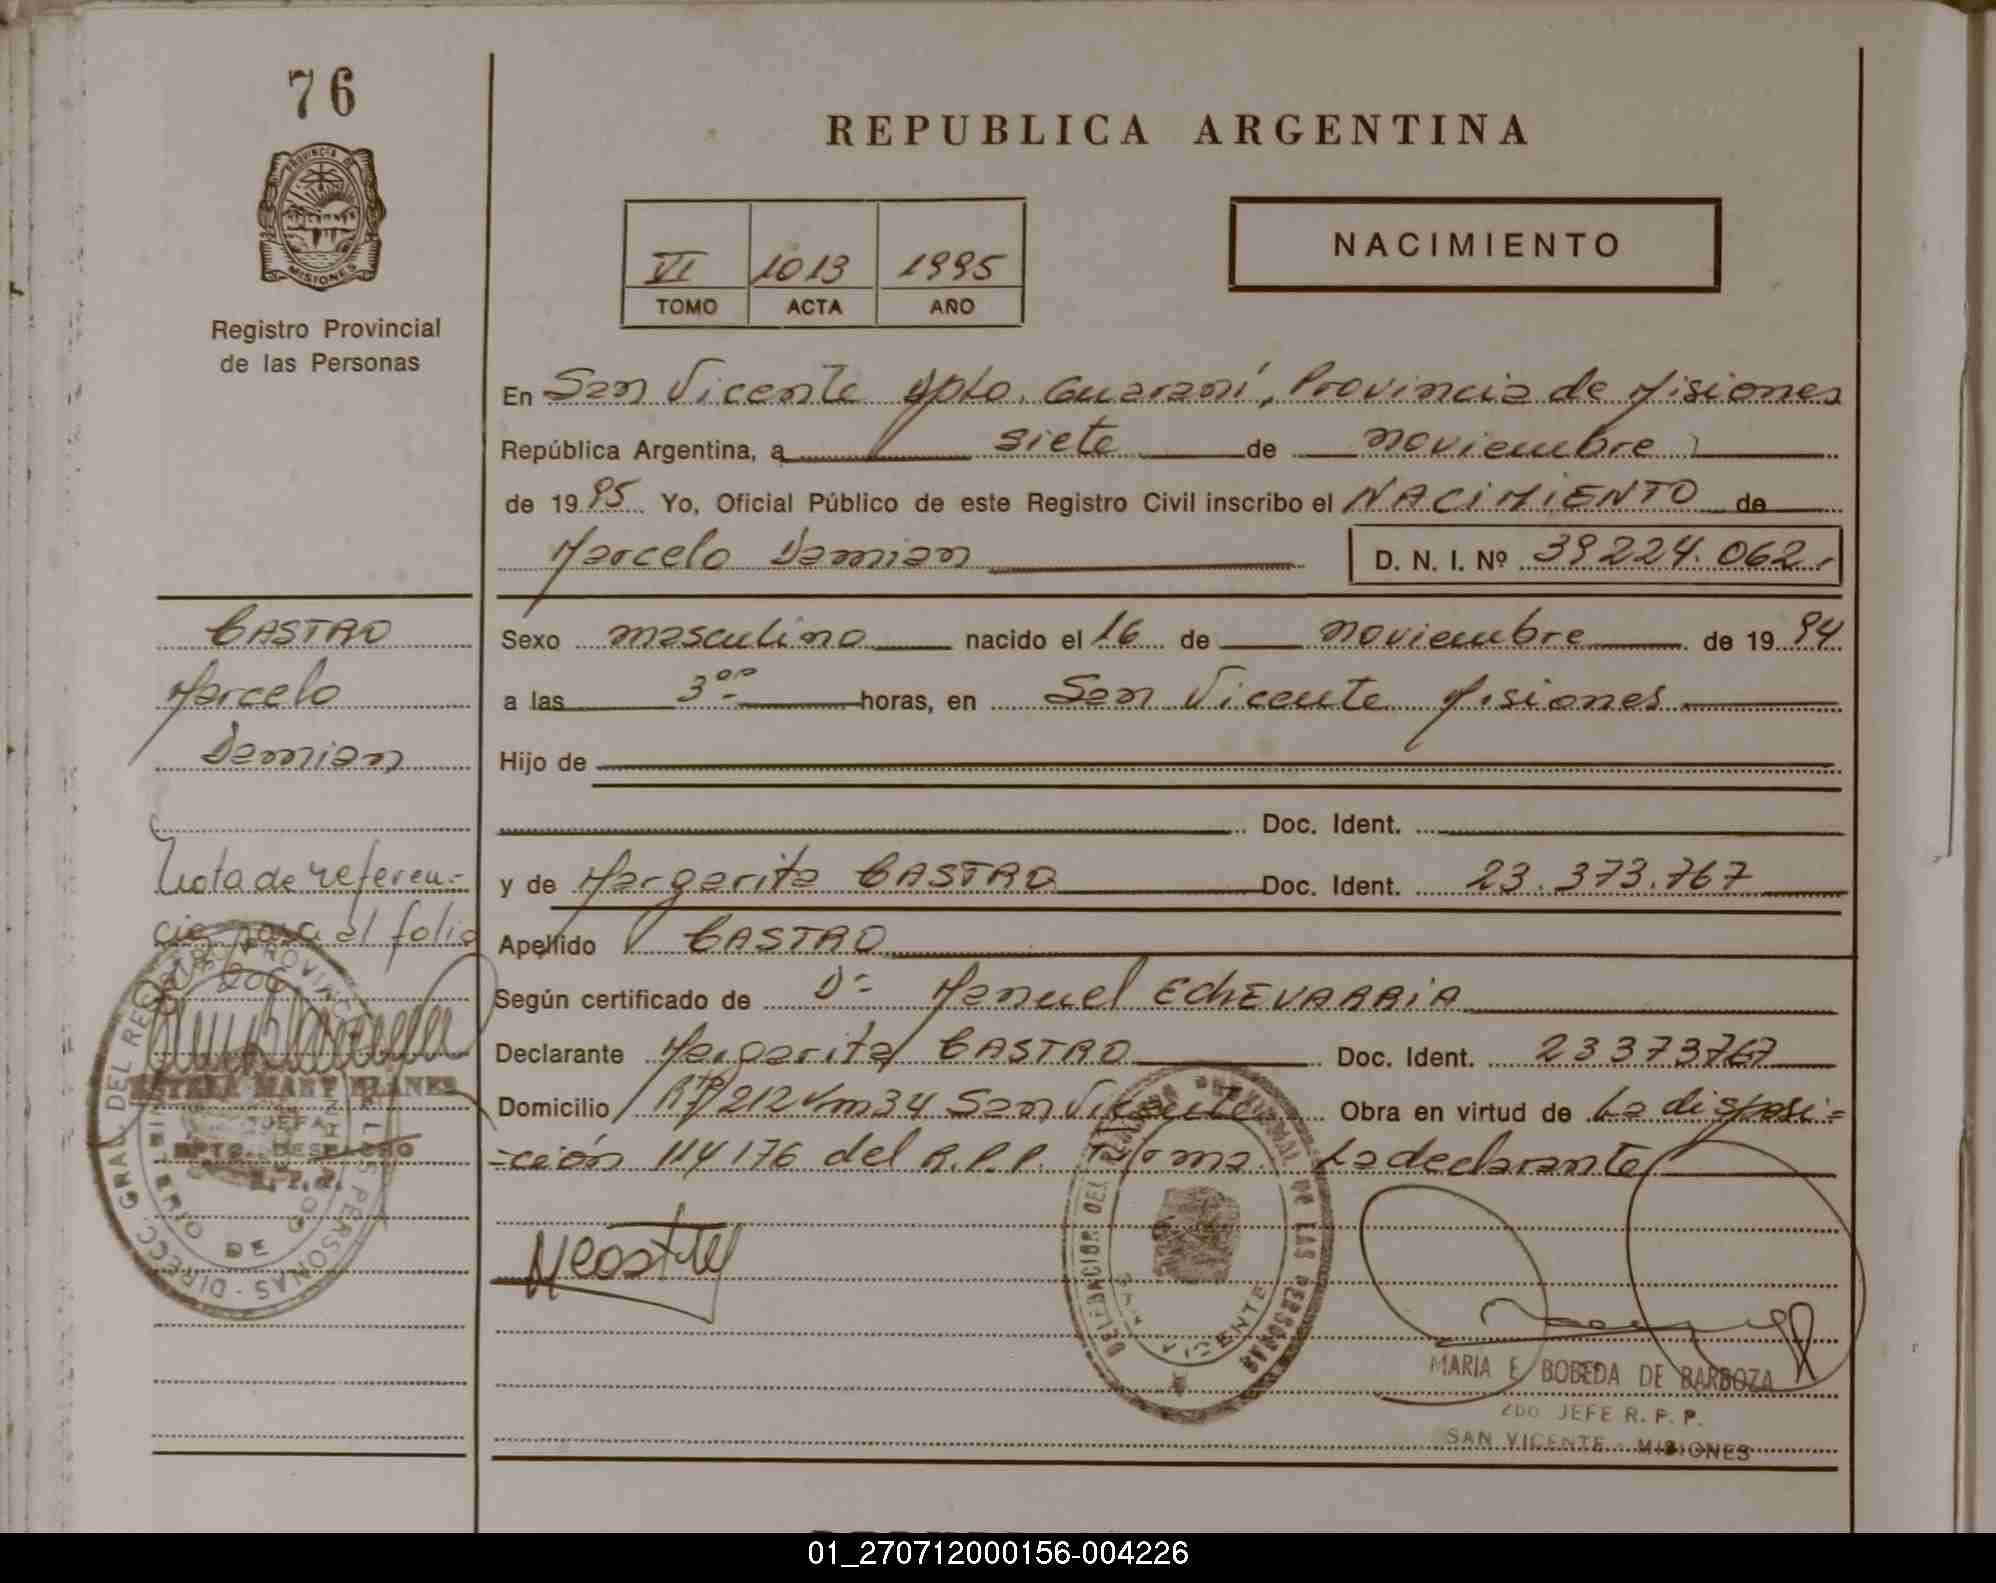 76
PROVINCIA DE
MISIONES
Registro Provincial
de las Personas
REPUBLICA ARGENTINA
VI 1013 1995
TOMO ACTA AÑO
NACIMIENTO
En San Vicente Dpto. Guaraní, Provincia de Misiones
República Argentina, a siete de noviembre
de 1995 Yo, Oficial Público de este Registro Civil inscribo el NACIMIENTO de
Marcelo Damian D. N. I. Nº 39224.062.
Sexo masculino nacido el 16 de noviembre de 1994
a las 3⁰⁰ horas, en San Vicente Misiones
Hijo de
Doc. Ident.
y de Margarita CASTRO Doc. Ident. 23.373.767
Apellido CASTRO
Según certificado de Dº Manuel ECHEVARRIA
Declarante Margarita CASTRO Doc. Ident. 23373767
Domicilio Rta 212 Km 34 San Vicente Obra en virtud de La disposi=
=ción 114176 del R.P.P. Firma La declarante
CASTRO
Marcelo
Damian
Nota de referen-
cia para el folio
206
ESTELA MARY BLANES
JEFA
DPTO. DESPACHO
DIRECC. GRAL. DEL REGISTRO PROVINCIAL DE LAS PERSONAS
DELEGACION DEL REGISTRO PROVINCIAL DE LAS PERSONAS
SAN VICENTE
MARIA E BOBEDA DE BARBOZA
2DO JEFE R. P. P.
SAN VICENTE - MISIONES
01_270712000156-004226